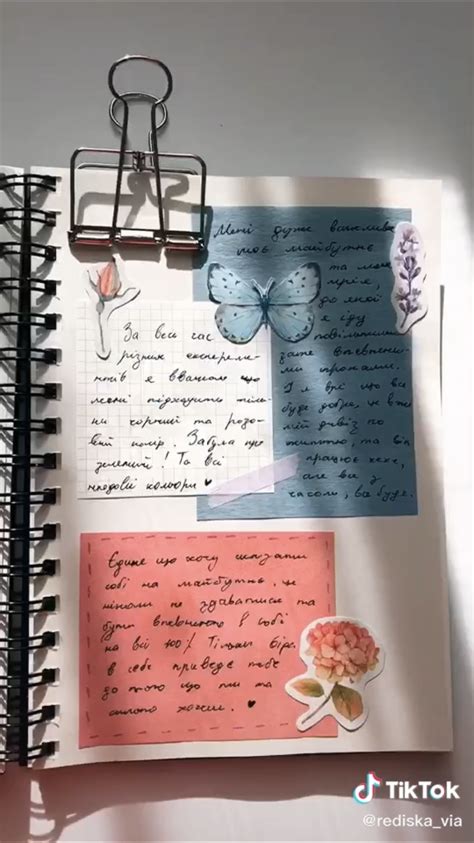 Мені дуже важливе
моє майбутнє
та моя
мрія
до якої
я іду
повільними
але впевнени-
ми кроками.
І я вірю що все
буде добре, це вже
мій девіз по
життю, та він
працює хехе,
але все з
часом, все буде.
За весь час
різних експери-
ментів я вважаю що
мені підходить тіль-
ки чорний та розо-
вий колір. Забула про
зелений! Та всі
колір ♥
Єдине що хочу сказати
собі на майбутнє, це
ніколи не здаватися та
бути впевненою в собі
на всі 100% Тільки віра
в себе приведе тебе
до того що ти так
сильно хочеш. ♥
TikTok
@rediska_via